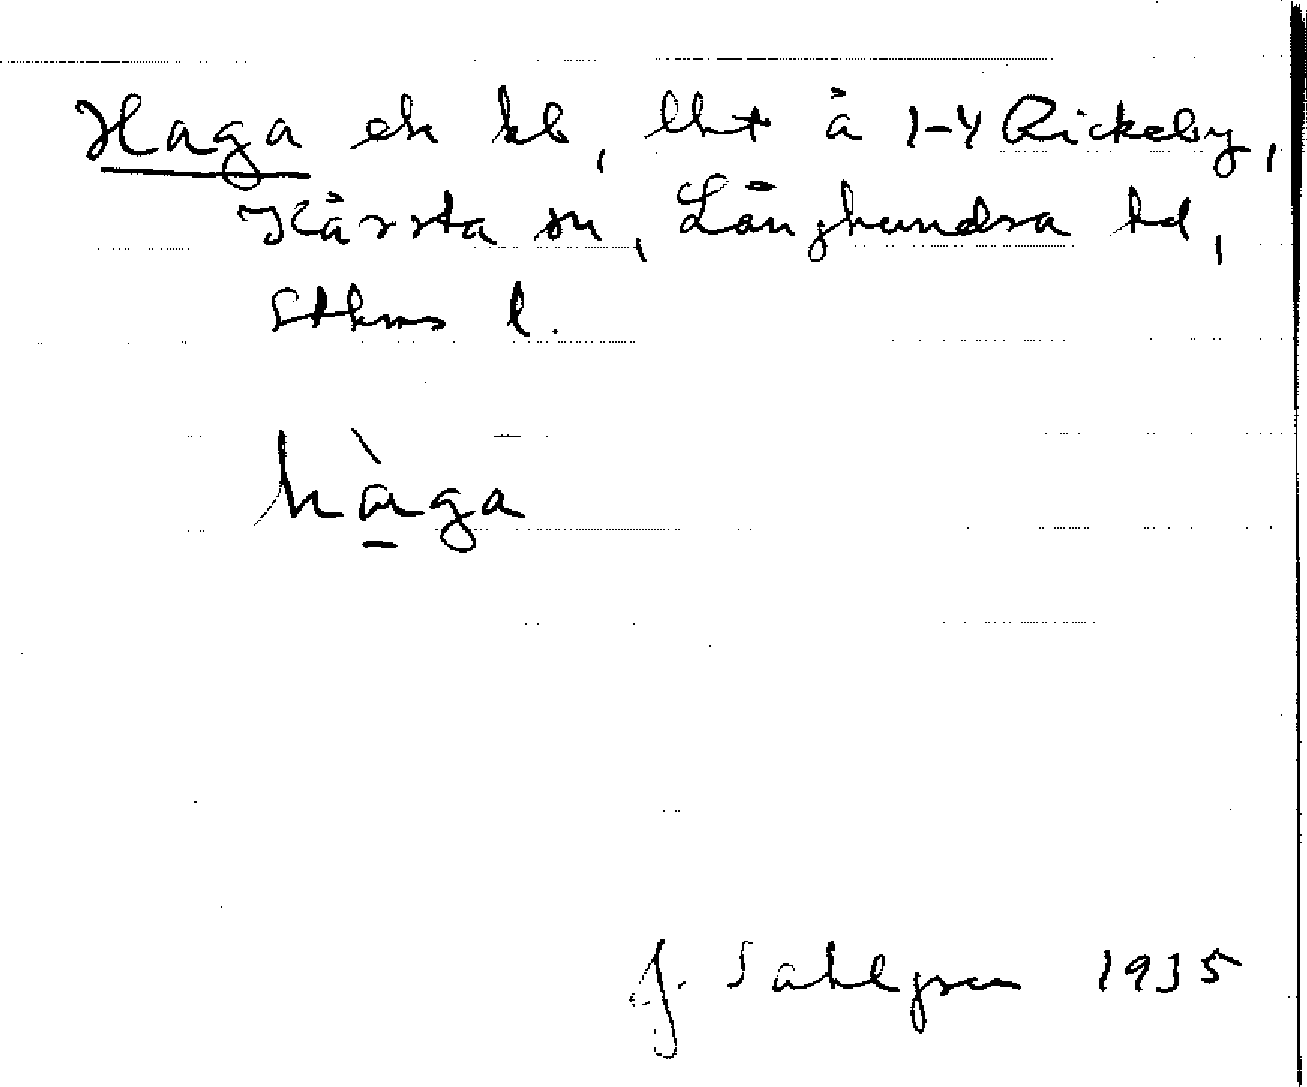 Haga ek kb, lht å 1-4 Rickeby,
Kårsta sn, Långhundra hd,
Sthms l.
hàga
J. Sahlgren 1935